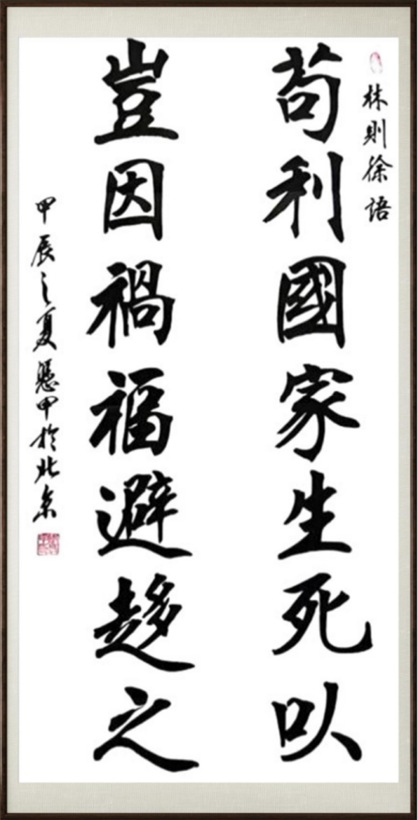 林則徐語
苟利國家生死㕥
豈因禍福避趍之
甲辰之夏憑甲於北京